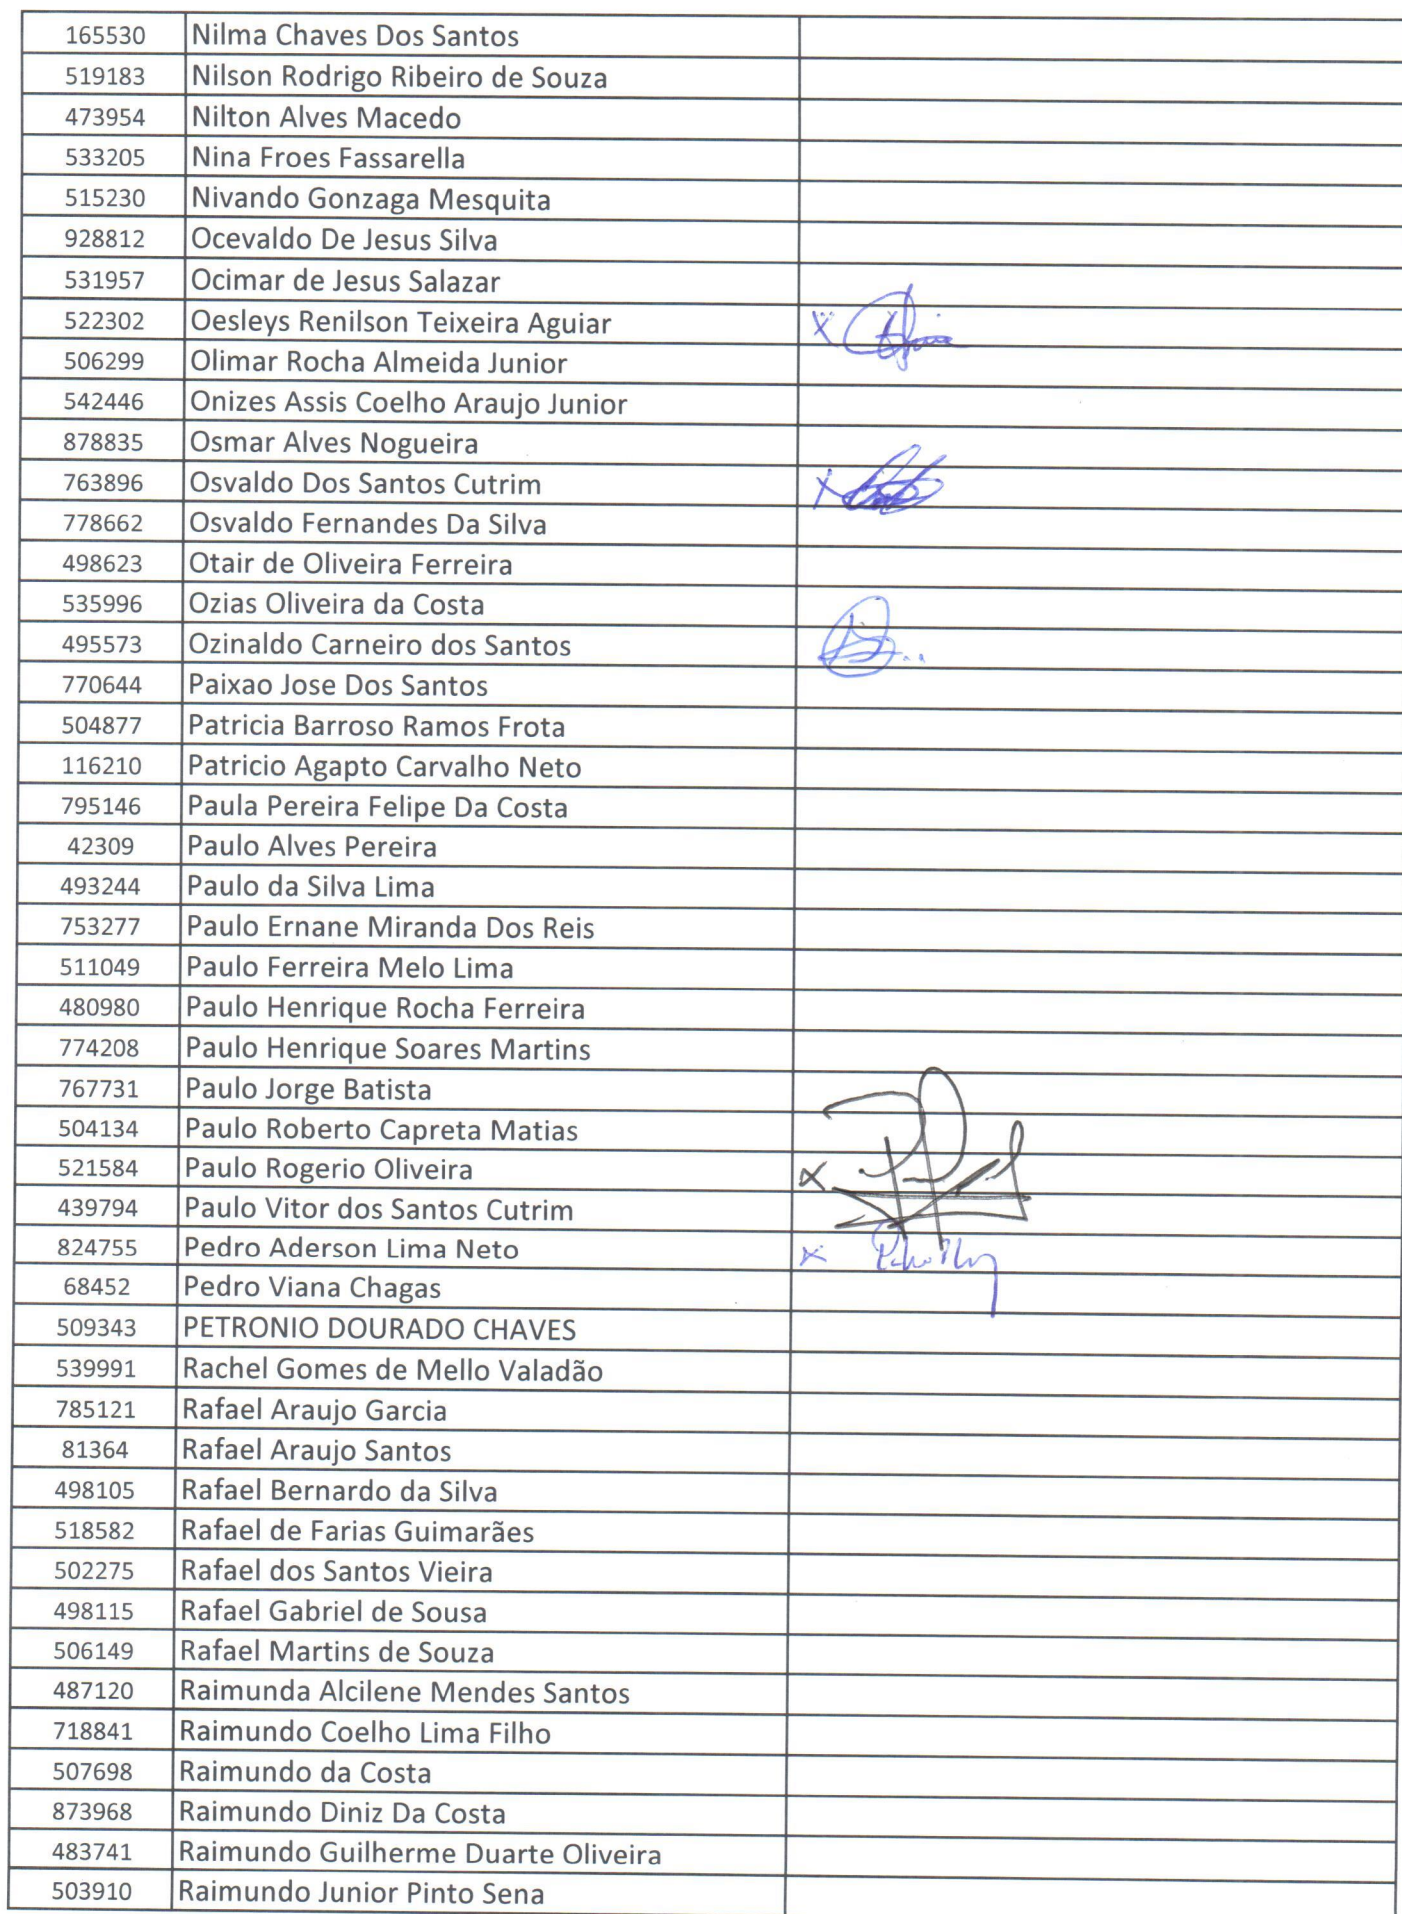 165530 Nilma Chaves Dos Santos
519183 Nilson Rodrigo Ribeiro de Souza
473954 Nilton Alves Macedo
533205 Nina Froes Fassarella
515230 Nivando Gonzaga Mesquita
928812 Ocevaldo De Jesus Silva
531957 Ocimar de Jesus Salazar
522302 Oesleys Renilson Teixeira Aguiar X
506299 Olimar Rocha Almeida Junior
542446 Onizes Assis Coelho Araujo Junior
878835 Osmar Alves Nogueira
763896 Osvaldo Dos Santos Cutrim X
778662 Osvaldo Fernandes Da Silva
498623 Otair de Oliveira Ferreira
535996 Ozias Oliveira da Costa
495573 Ozinaldo Carneiro dos Santos
770644 Paixao Jose Dos Santos
504877 Patricia Barroso Ramos Frota
116210 Patricio Agapto Carvalho Neto
795146 Paula Pereira Felipe Da Costa
42309 Paulo Alves Pereira
493244 Paulo da Silva Lima
753277 Paulo Ernane Miranda Dos Reis
511049 Paulo Ferreira Melo Lima
480980 Paulo Henrique Rocha Ferreira
774208 Paulo Henrique Soares Martins
767731 Paulo Jorge Batista
504134 Paulo Roberto Capreta Matias
521584 Paulo Rogerio Oliveira X
439794 Paulo Vitor dos Santos Cutrim
824755 Pedro Aderson Lima Neto X
68452 Pedro Viana Chagas
509343 PETRONIO DOURADO CHAVES
539991 Rachel Gomes de Mello Valadão
785121 Rafael Araujo Garcia
81364 Rafael Araujo Santos
498105 Rafael Bernardo da Silva
518582 Rafael de Farias Guimarães
502275 Rafael dos Santos Vieira
498115 Rafael Gabriel de Sousa
506149 Rafael Martins de Souza
487120 Raimunda Alcilene Mendes Santos
718841 Raimundo Coelho Lima Filho
507698 Raimundo da Costa
873968 Raimundo Diniz Da Costa
483741 Raimundo Guilherme Duarte Oliveira
503910 Raimundo Junior Pinto Sena